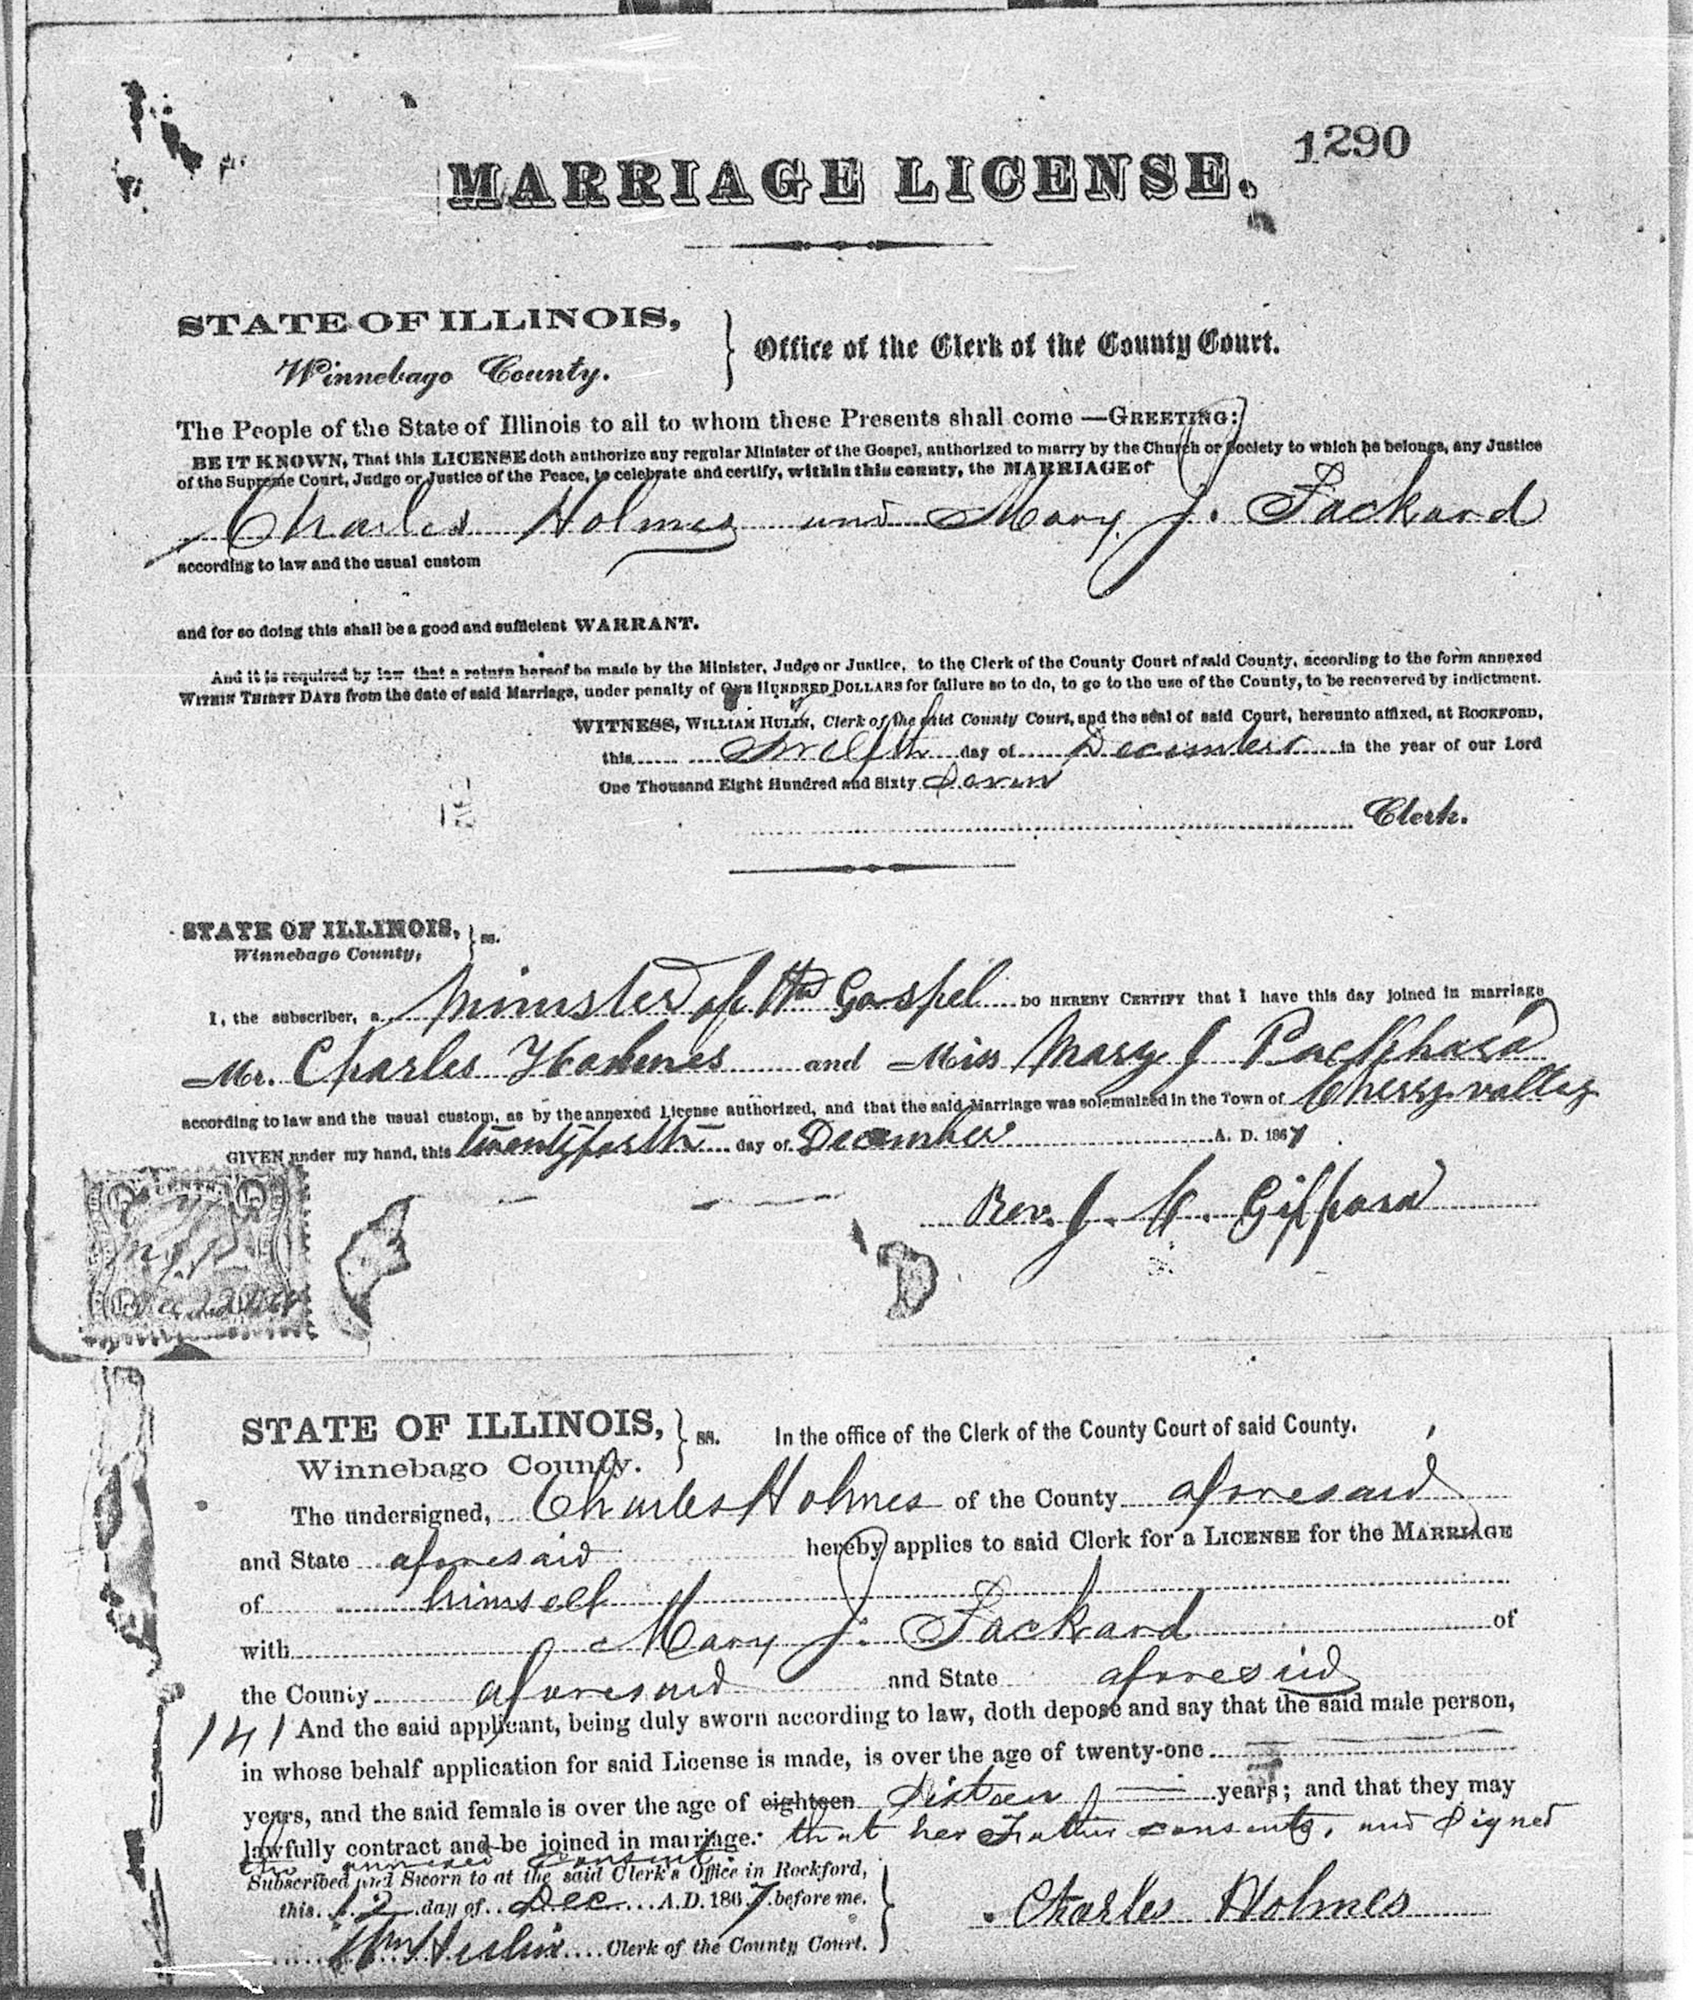 1290
MARRIAGE LICENSE.
STATE OF ILLINOIS,
Winnebago County.
Office of the Clerk of the County Court.
The People of the State of Illinois to all to whom these Presents shall come —GREETING:
BE IT KNOWN, That this LICENSE doth authorize any regular Minister of the Gospel, authorized to marry by the Church or Society to which he belongs, any Justice
of the Supreme Court, Judge or Justice of the Peace, to celebrate and certify, within this county, the MARRIAGE of
Charles Holmes and Mary J. Packard
according to law and the usual custom
and for so doing this shall be a good and sufficient WARRANT.
And it is required by law that a return hereof be made by the Minister, Judge or Justice, to the Clerk of the County Court of said County, according to the form annexed
WITHIN THIRTY DAYS from the date of said Marriage, under penalty of ONE HUNDRED DOLLARS for failure so to do, to go to the use of the County, to be recovered by indictment.
WITNESS, WILLIAM HULIN, Clerk of the said County Court, and the seal of said Court, hereunto affixed, at ROCKFORD,
this Twelfth day of December in the year of our Lord
One Thousand Eight Hundred and Sixty Seven
Clerk.
STATE OF ILLINOIS,
Winnebago County,
ss.
I, the subscriber, a Minister of the Gospel DO HEREBY CERTIFY that I have this day joined in marriage
Mr. Charles Holmes and Miss Mary J Packhard
according to law and the usual custom, as by the annexed License authorized, and that the said Marriage was solemnized in the Town of Cherry valley
GIVEN under my hand, this twentyforth day of December A. D. 1867
Rev. J. M. Gifford
CENTS
M J P
STATE OF ILLINOIS,
Winnebago County.
ss. In the office of the Clerk of the County Court of said County.
The undersigned, Charles Holmes of the County aforesaid
and State aforesaid hereby applies to said Clerk for a LICENSE for the MARRIAGE
of himself
with Mary J. Packard of
the County aforesaid and State aforesaid
141 And the said applicant, being duly sworn according to law, doth depose and say that the said male person,
in whose behalf application for said License is made, is over the age of twenty-one
years, and the said female is over the age of eighteen Sixteen years; and that they may
lawfully contract and be joined in marriage. that her Father consents, and Signed
the annexed Consent.
Subscribed and Sworn to at the said Clerk's Office in Rockford,
this 12 day of Dec A.D. 1867 before me.
Charles Holmes
Wm Hulin Clerk of the County Court.